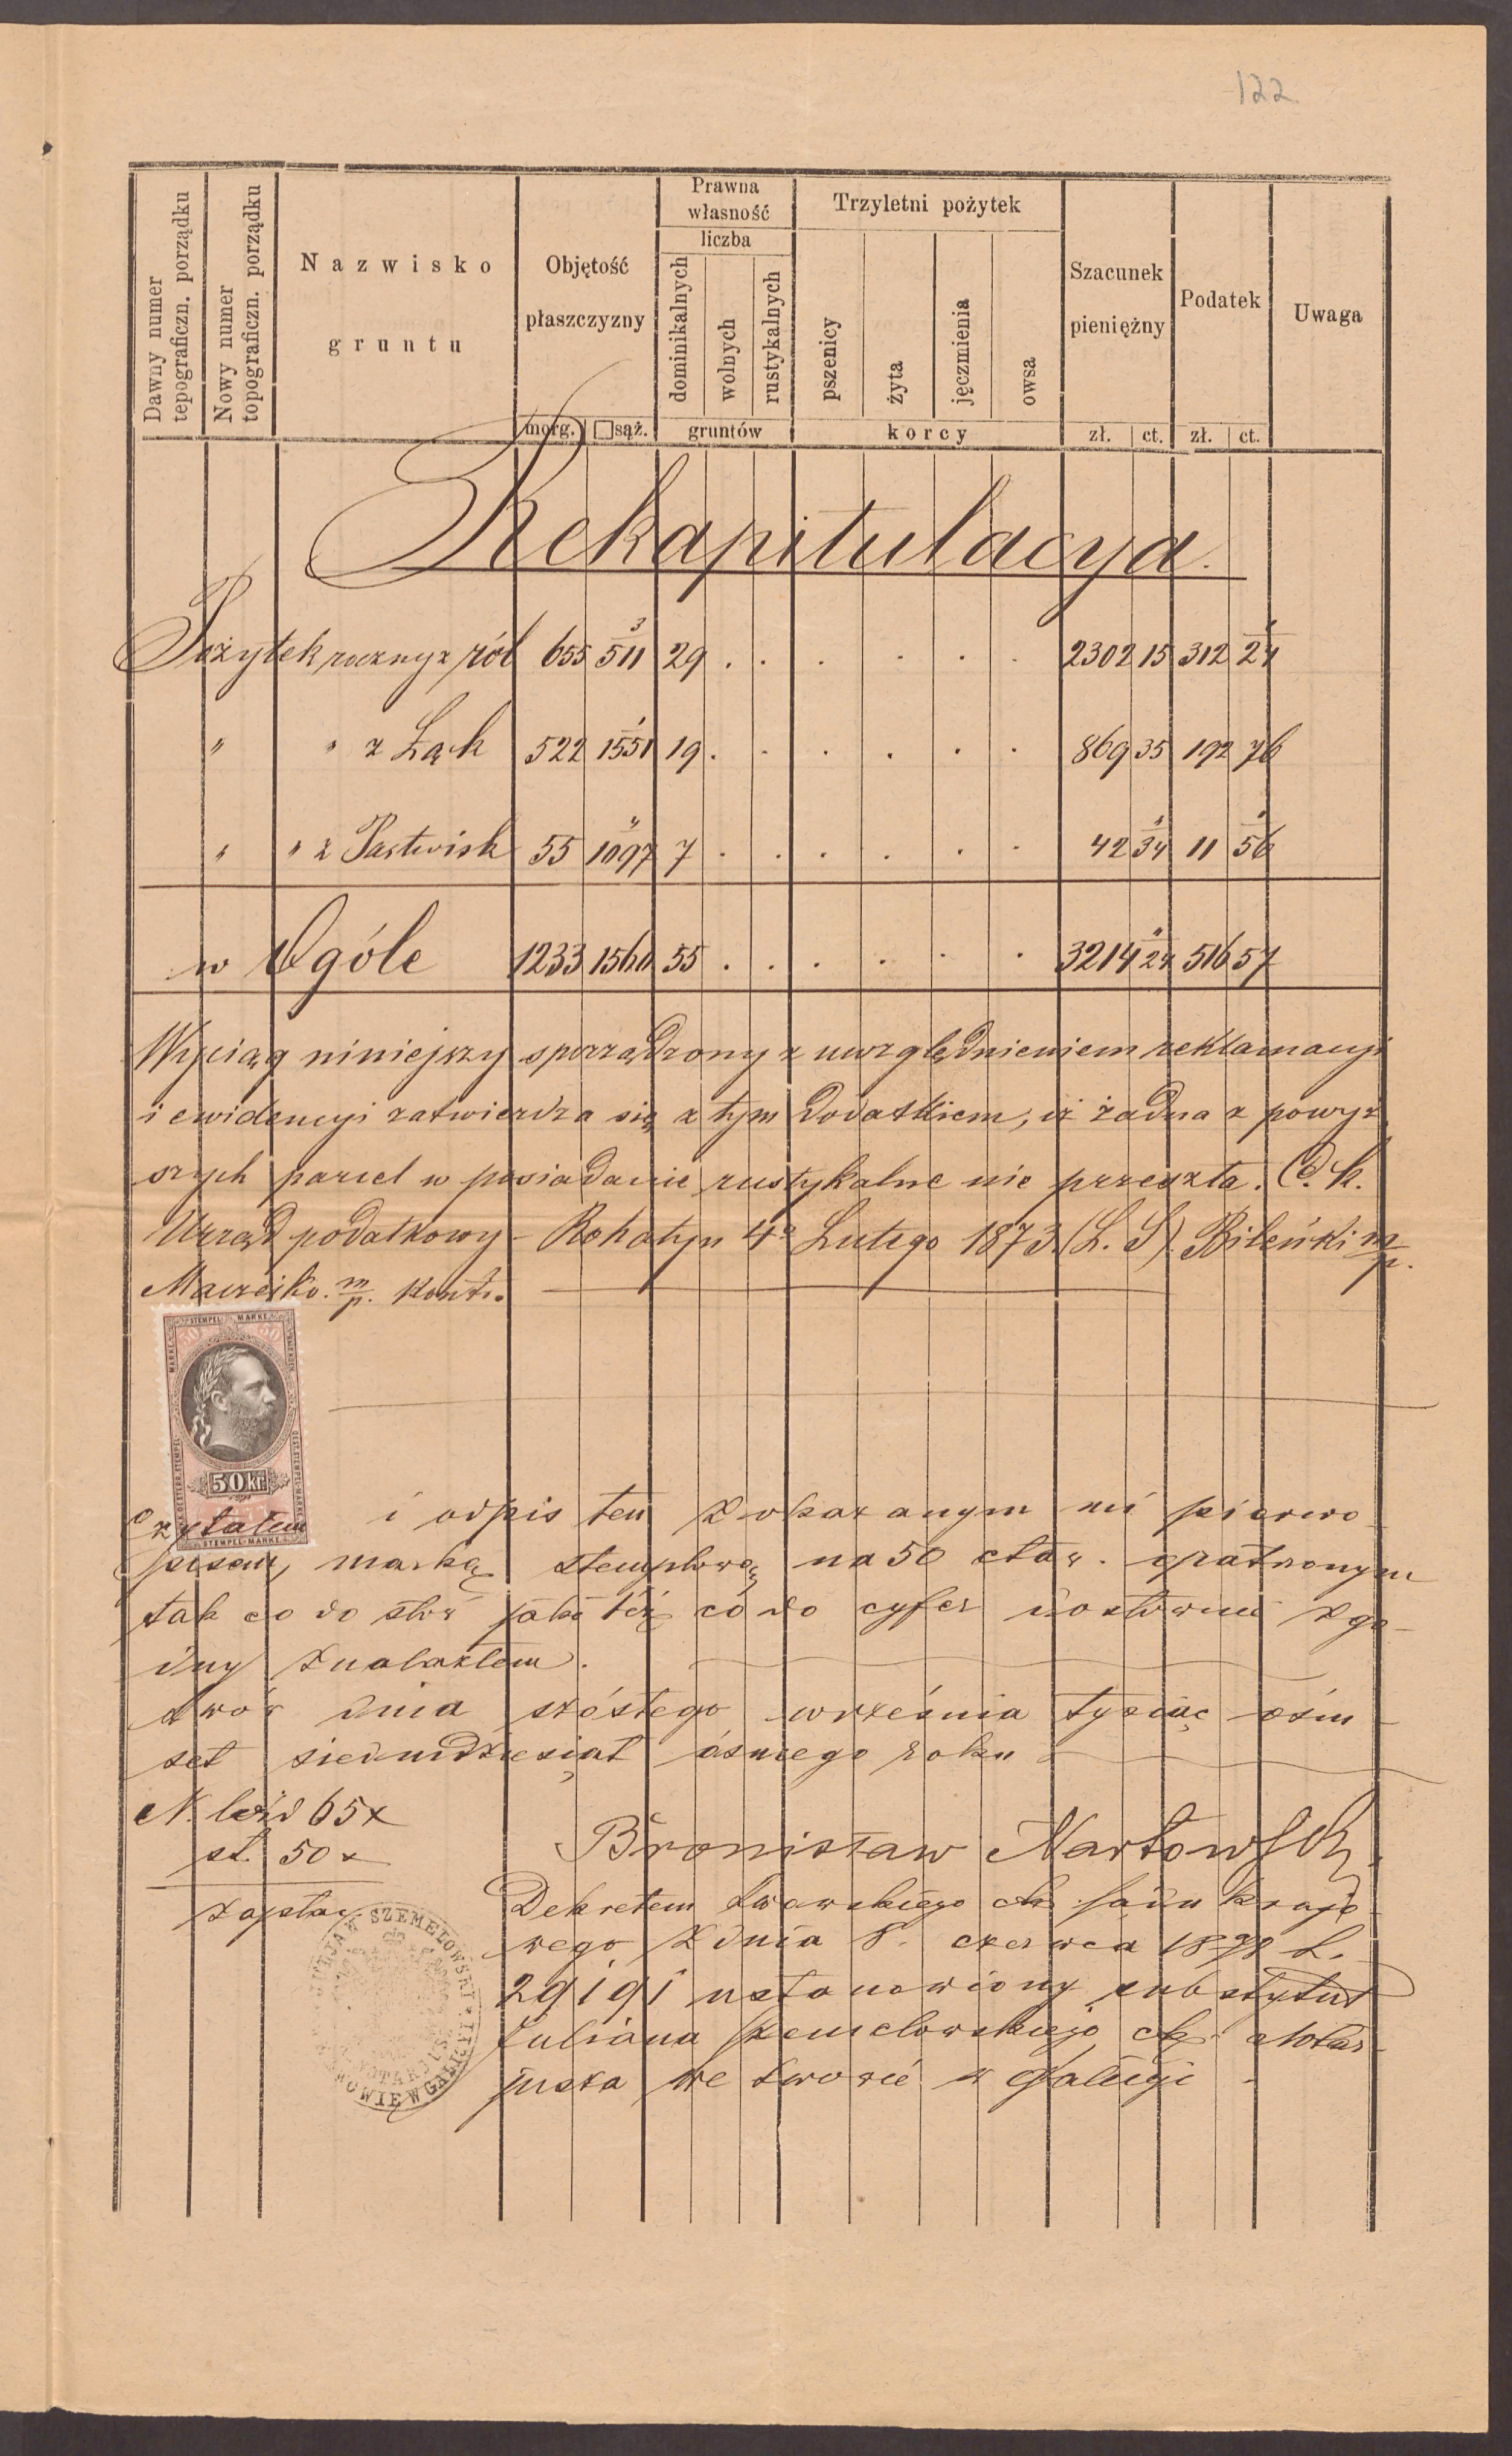 122
Dawny numer
tepograficzn. porządku
Nowy numer
topograficzn. porządku
Nazwisko
gruntu
Objętość
płaszczyzny
morg. □sąż.
Prawna
własność
liczba
dominikalnych
wolnych
rustykalnych
gruntów
Trzyletni pożytek
pszenicy
żyta
jęczmienia
owsa
korcy
Szacunek
pieniężny
zł. ct.
Podatek
zł. ct.
Uwaga
Rekapitulacya.
Pożytek roczny z ról 655 511 29 . . . . . . 2302 15 312 24
" " z Łąk 522 1551 19 . . . . . . 869 35 192 76
" " z Pastwisk 55 1097 7 . . . . . . 42 34 11 56
w Ogóle 1233 1560 55 . . . . . . 3214 24 516 57
Wyciąg niniejszy sporządzony z uwzględnieniem reklamacyi
i ewidencyi zatwierdza się z tym dodatkiem, iż żadna z powyż
szych parcel w posiadanie rustykalne nie przeszła. C. k.
Urząd podatkowy – Rohatyn 4º Lutego 1873 (L. S) Bileński m/p.
m/p. kontr.
STEMPEL-MARKE
50 kr
STEMPEL-MARKE
Czytałem i odpis ten z okazanym mi pierwo
pisem, marką stemplową na 50 ctów. opatrzonym
tak co do słów jakoteż co do cyfer dosłownie zgo
dny znalazłem.
Lwów dnia szóstego września tysiąc ośm
set siedmdziesiąt ósmego roku
N. 65x
st. 50x
Bronisław
Dekretem Lwowskiego ck. sądu krajo
wego z dnia 8. czerwca 1878 L.
29191 ustanowiony substytut
Juliana Szemelowskiego ck. Notar
jusza we Lwowie w Galicyi
SZEMELOWSKI
NOTARJUSZ
LWOWIE W GALICYI